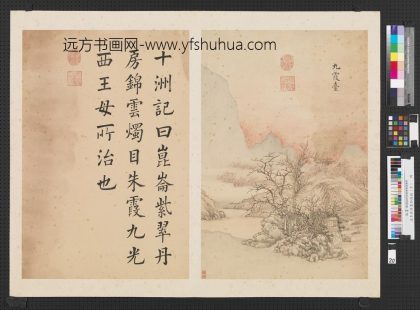 远方书画网- www.yfshuhua.com
九霞臺
十洲記曰崑崙紫翠丹
房錦雲燭日朱霞九光
西王母所治也